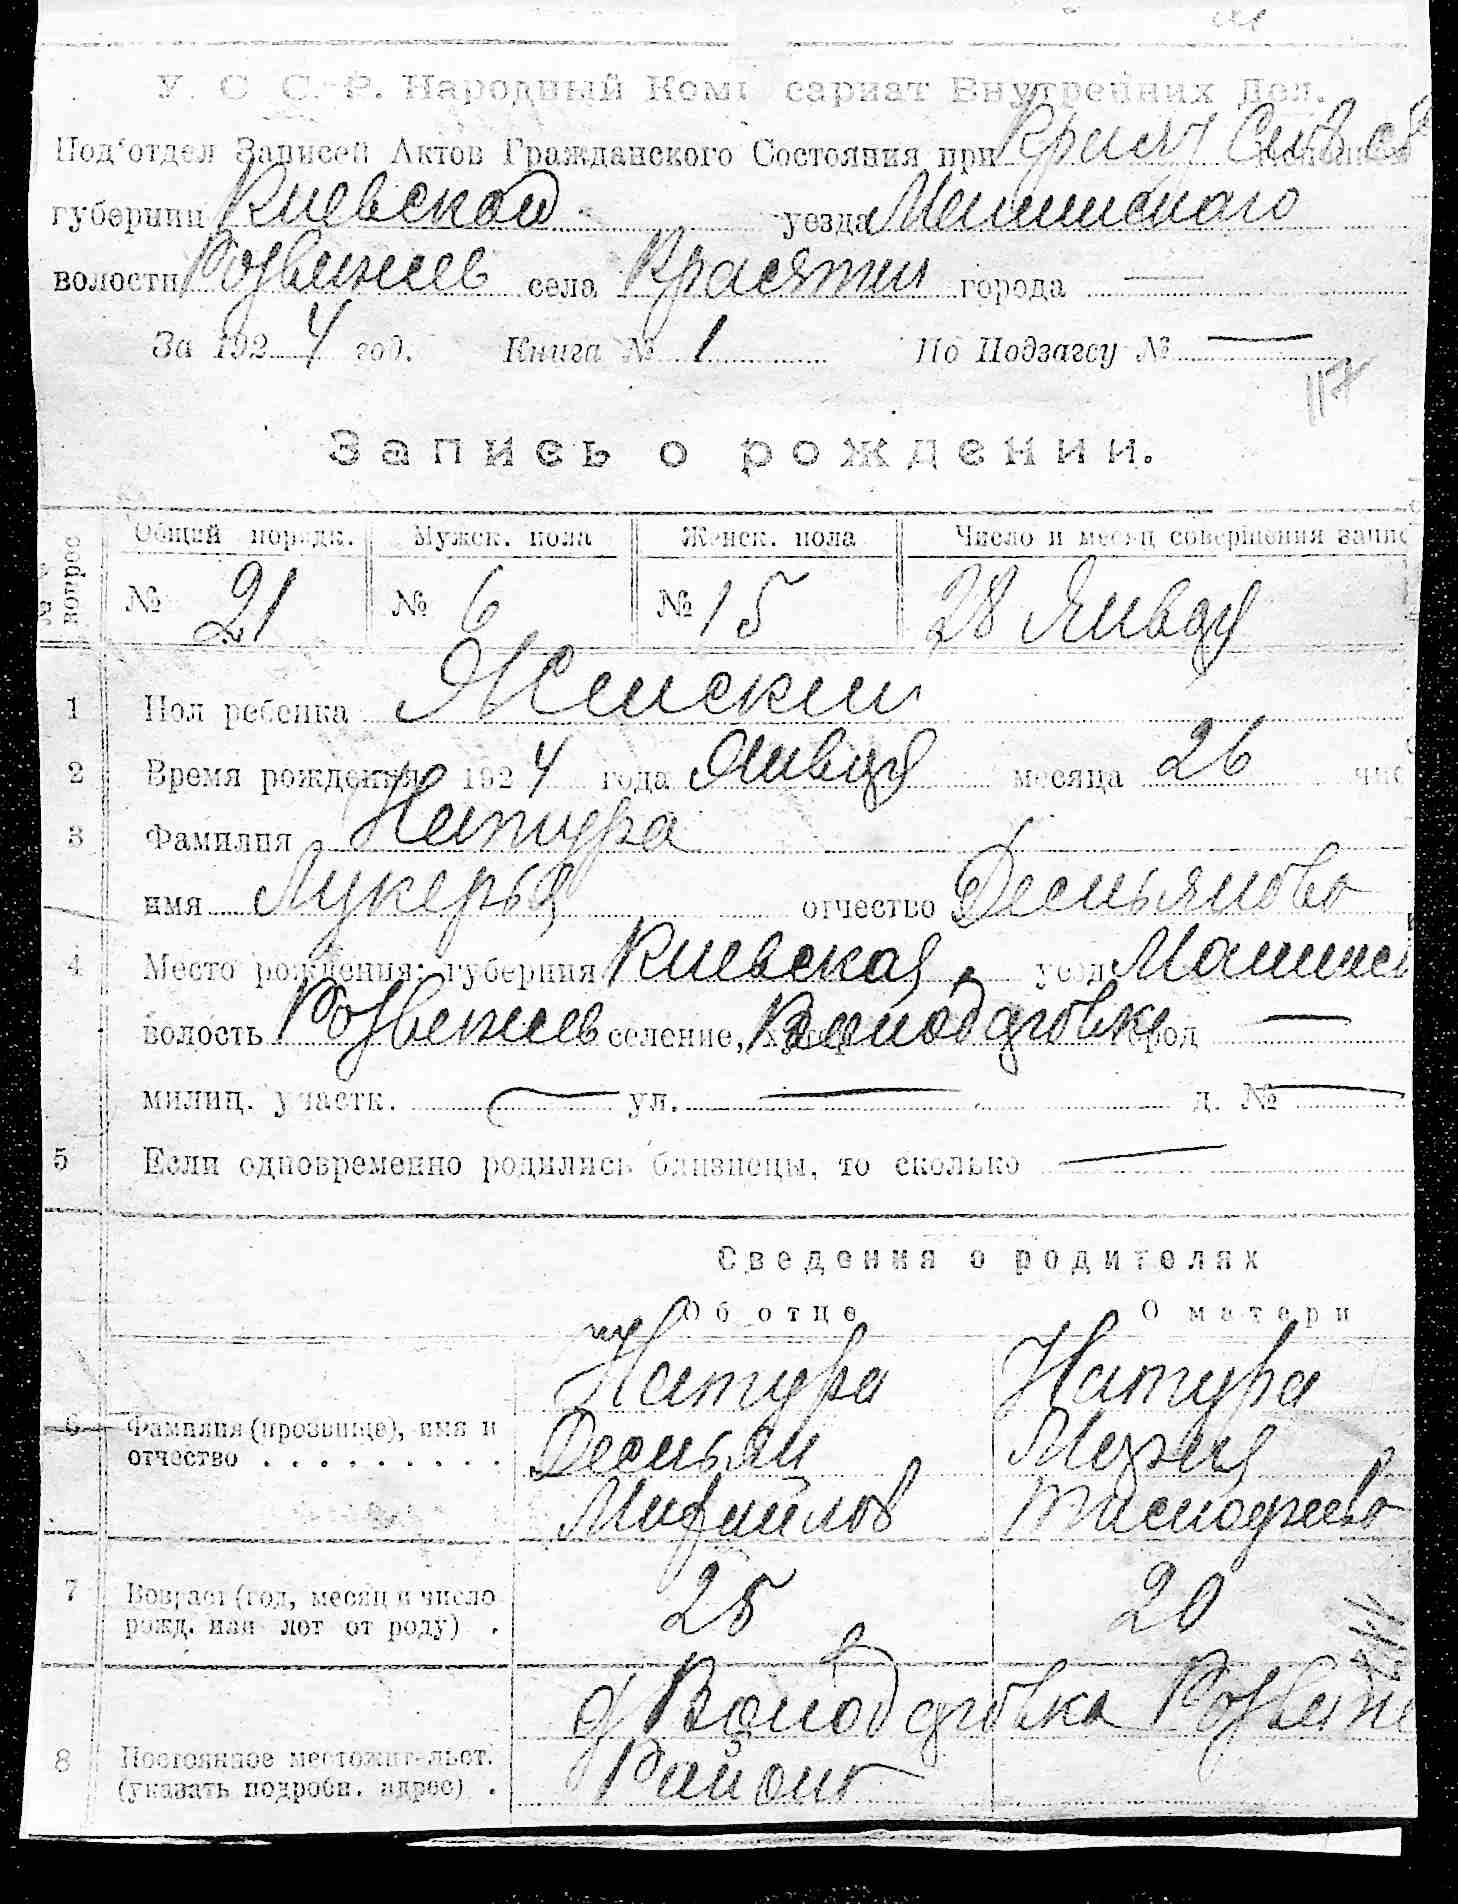 У. С. С. Р. Народный Комиссариат Внутренних Дел.
Под'отдел Записей Актов Гражданского Состояния при
губернии Киевской уезда
волости села Красятич города —
За 1924 год. Книга № 1 По Подзагсу № —
117
Запись о рождении.
№ вопрос
Общий порядк. Мужск. пола Женск. пола Число и месяц совершения запис
№ 21 № 6 № 15 28 Января
1 Пол ребенка Женский
2 Время рождения 1924 года Января месяца 26 чис
3 Фамилия Натура
имя Лукерья отчество Демьянова
4 Место рождения: губерния Киевская, уезд
волость селение, город —
милиц. участк. — ул. — д. № —
5 Если одновременно родились близнецы, то сколько —
Сведения о родителях
Об отце О матери
Натура Натура
6 Фамилия (прозвище), имя и Демьян Мария
отчество . . . . . . . . . Михайлов
7 Возраст (год, месяц и число 25 20
рожд. или лет от роду) .
8 Постоянное местожительст. Район
(указать подробн. адрес) .